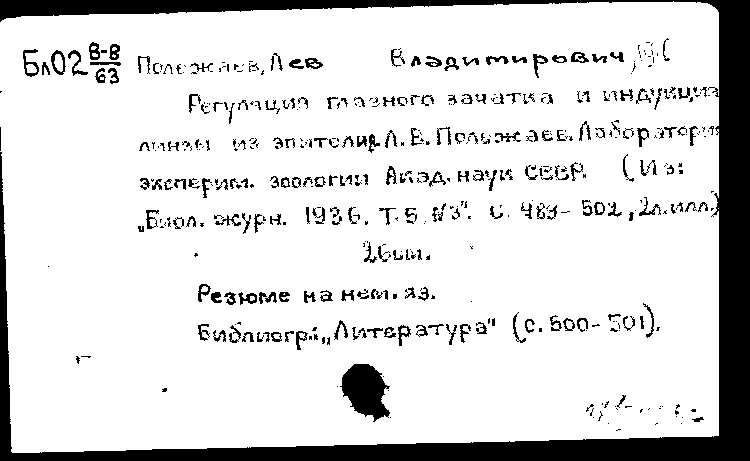 Бл02 В-8/63 Полежаев, Лев Владимирович, 19
Регуляция глазного зачатка и индукция
линзы из эпителия Л. В. Полежаев. Лаборатория
эксперим. зоологии Акад. наук СССР. (Из:
„Биол. журн. 1936. Т. 5. №3". С. 489-502, 2л.илл.)
26см.
Резюме на нем. яз.
Библиогр.: „Литература" (с. 500-501).